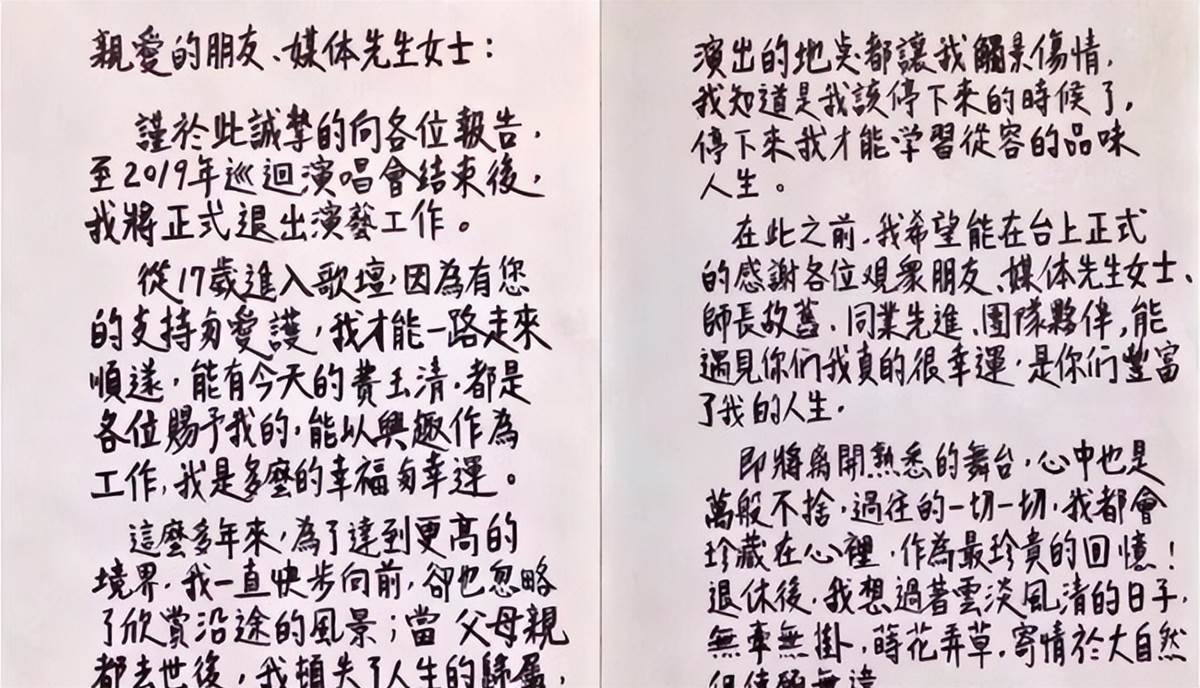 親愛的朋友、媒体先生女士：
謹於此誠摯的向各位報告，
至2019年巡迴演唱會結束後，
我將正式退出演藝工作。
從17歲進入歌壇，因為有您
的支持與愛護，我才能一路走來
順遂，能有今天的費玉清，都是
各位賜予我的，能以興趣作為
工作，我是多麼的幸福與幸運。
這麼多年來，為了達到更高的
境界，我一直快步向前，卻也忽略
了欣賞沿途的風景；當父母親
都去世後，我頓失了人生的歸屬，
演出的地点都讓我觸景傷情，
我知道是我該停下來的時候了，
停下來我才能学習從容的品味
人生。
在此之前，我希望能在台上正式
的感謝各位观眾朋友、媒体先生女士、
師長故舊、同業先進、團隊夥伴，能
遇見你们我真的很幸運，是你们豐富
了我的人生。
即將离開熟悉的舞台，心中也是
萬般不捨，過往的一切一切，我都會
珍藏在心裡，作為最珍貴的回憶！
退休後，我想過著雲淡風清的日子，
無牽無掛，蒔花弄草，寄情於大自然
但使願無違